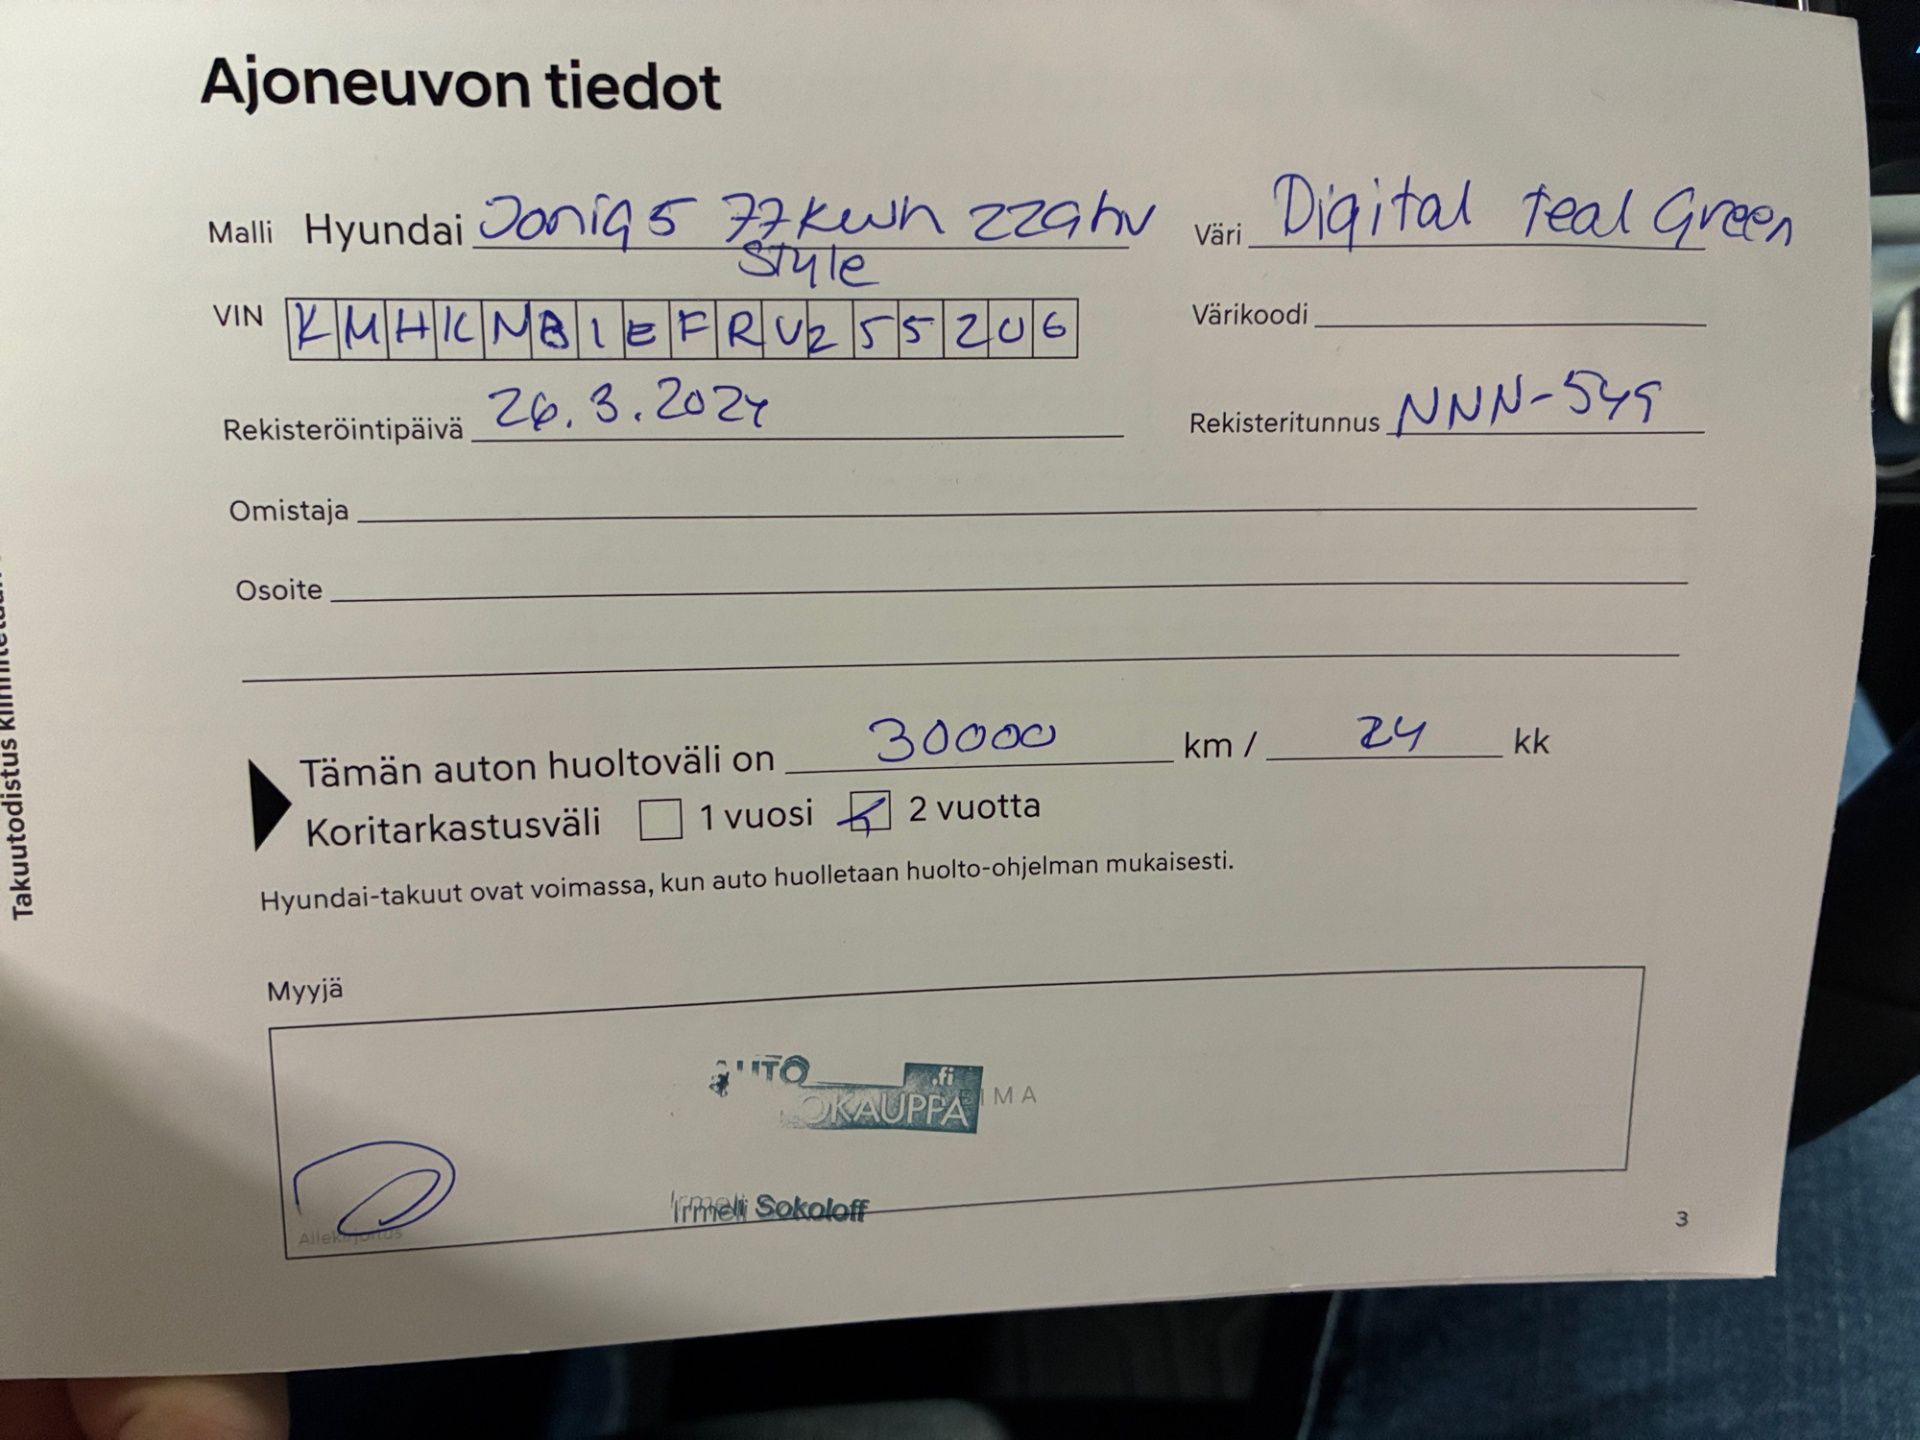 Ajoneuvon tiedot
Malli Hyundai Ioniq 5 77kwh 229hv Väri Digital teal Green
Style
VIN KMHKNB1EFRU255206 Värikoodi
Rekisteröintipäivä 26.3.2024 Rekisteritunnus NNN-549
Omistaja
Osoite
Tämän auton huoltoväli on 30000 km / 24 kk
Koritarkastusväli 1 vuosi 2 vuotta
Hyundai-takuut ovat voimassa, kun auto huolletaan huolto-ohjelman mukaisesti.
Myyjä
AUTO .fi
OKAUPPA IMA
Irmeli Sokoloff
Allekirjoitus
3
Takuutodistus